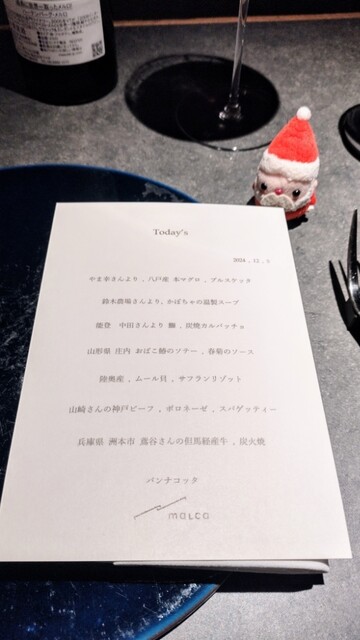 最高に世界一旨ったメルロ
Today's
2024 , 12 , 9
やま幸さんより , 八戸産 本マグロ , ブルスケッタ
鈴木農場さんより, かぼちゃの温製スープ
能登 中田さんより 鰤 , 炭焼カルパッチョ
山形県 庄内 おばこ鰆のソテー , 春菊のソース
陸奥産 , ムール貝 , サフランリゾット
山崎さんの神戸ビーフ , ボロネーゼ , スパゲッティー
兵庫県 洲本市 蔦谷さんの但馬経産牛 , 炭火焼
パンナコッタ
molco